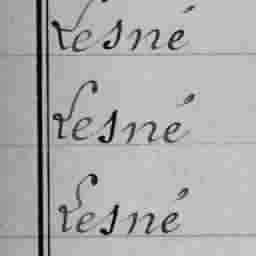 Lesné
Lesné
Lesné